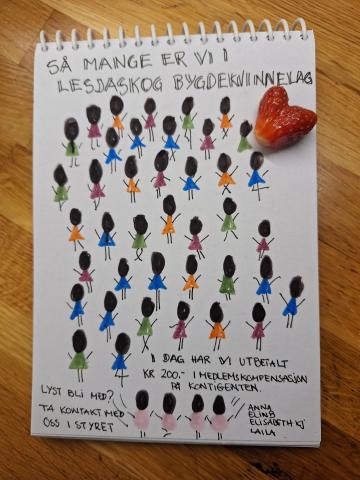 SÅ MANGE ER VI I
LESJASKOG BYGDEKVINNELAG
I DAG HAR VI UTBETALT
KR 200.- I MEDLEMSKOMPENSASJON
PÅ KONTIGENTEN.
LYST BLI MED?
TA KONTAKT MED
OSS I STYRET
ANNA
ELINB
ELISABETH KJ
LAILA